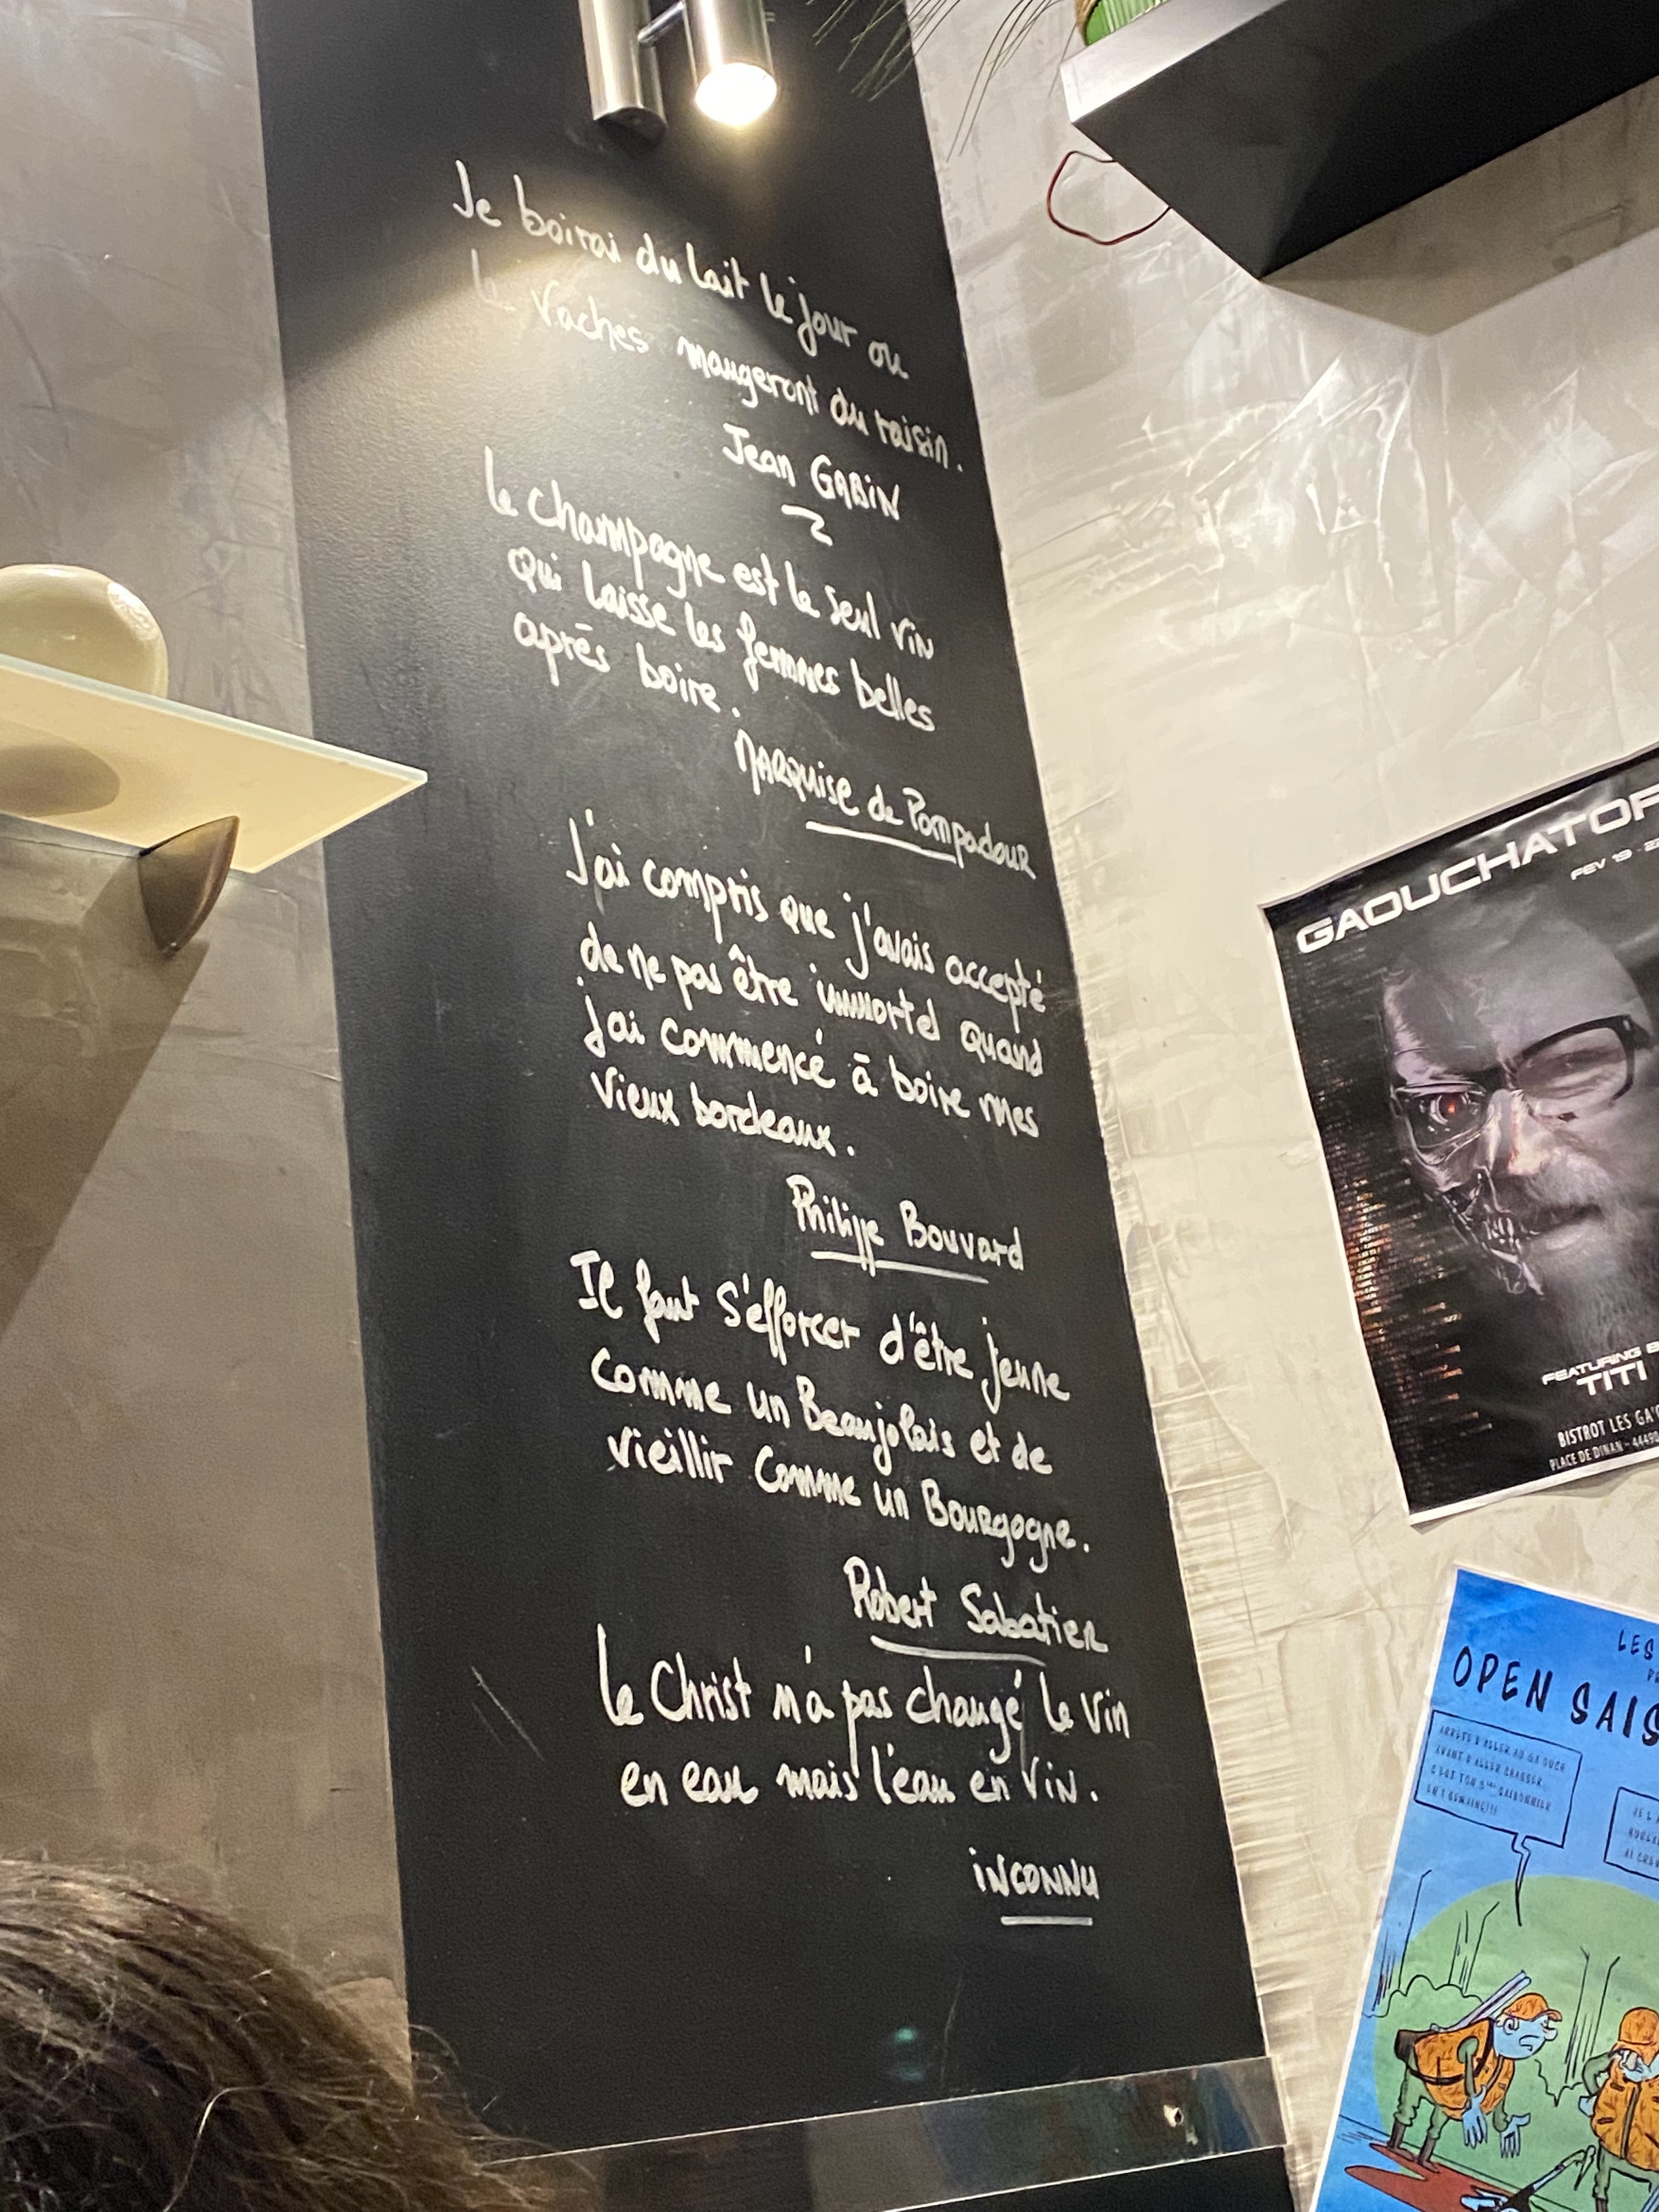 Je boirai du lait le jour ou
le vaches mangeront du raisin.
Jean GABIN
le champagne est le seul vin
qui laisse les femmes belles
après boire.
MARQUISE de Pompadour
J'ai compris que j'avais accepté
de ne pas être immortel quand
j'ai commencé à boire mes
vieux bordeaux.
Philippe Bouvard
Il faut s'efforcer d'être jeune
comme un Beaujolais et de
vieillir comme un Bourgogne.
Robert Sabatier
Le Christ n'a pas changé le vin
en eau mais l'eau en vin.
INCONNU
GAOUCHATOR
FEV 19 - 22
FEATURING B
TITI
BISTROT LES GA'O
PLACE DE DINAN - 44490
LES
OPEN SAIS
ARRETE D'ALLER AU GAOUCH
AVANT D'ALLER CHASSER,
C'EST TON 3ème SAISONNIER
EN 1 SEMAINE!!!